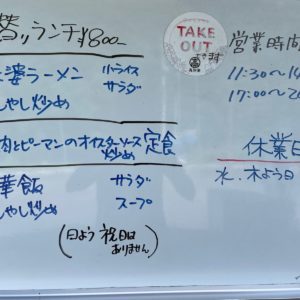 替りランチ ¥800-
婆ラーメン 小ライス
もやし炒め サラダ
肉とピーマンのオイスターソース炒め 定食
華飯 サラダ
もやし炒め スープ
(日よう祝日はありません)
TAKE
OUT
できます
営業時間
11:30~14
17:00~20
休業日
水.木よう日